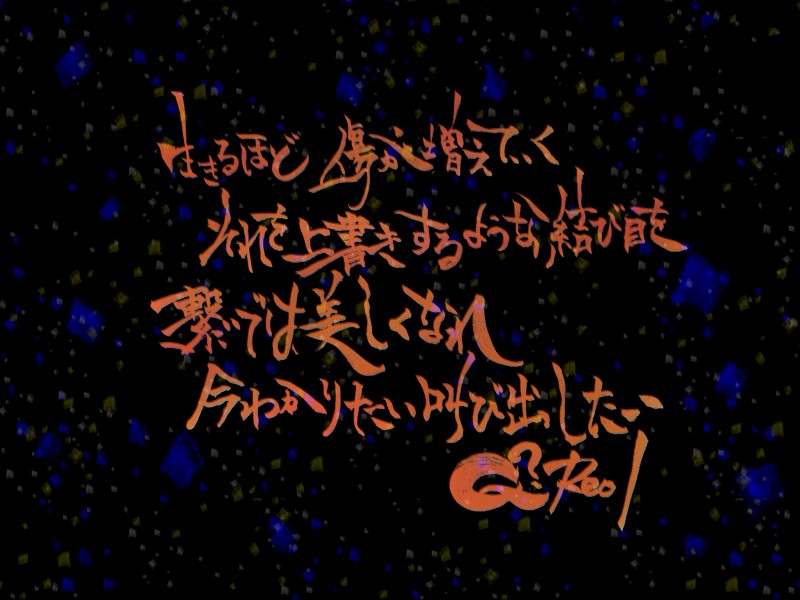 生きるほど傷が増えていく
それを上書きするような結び目を
繋いでは美しくなれ
今わかりたい叫び出したい
Q?/Reol